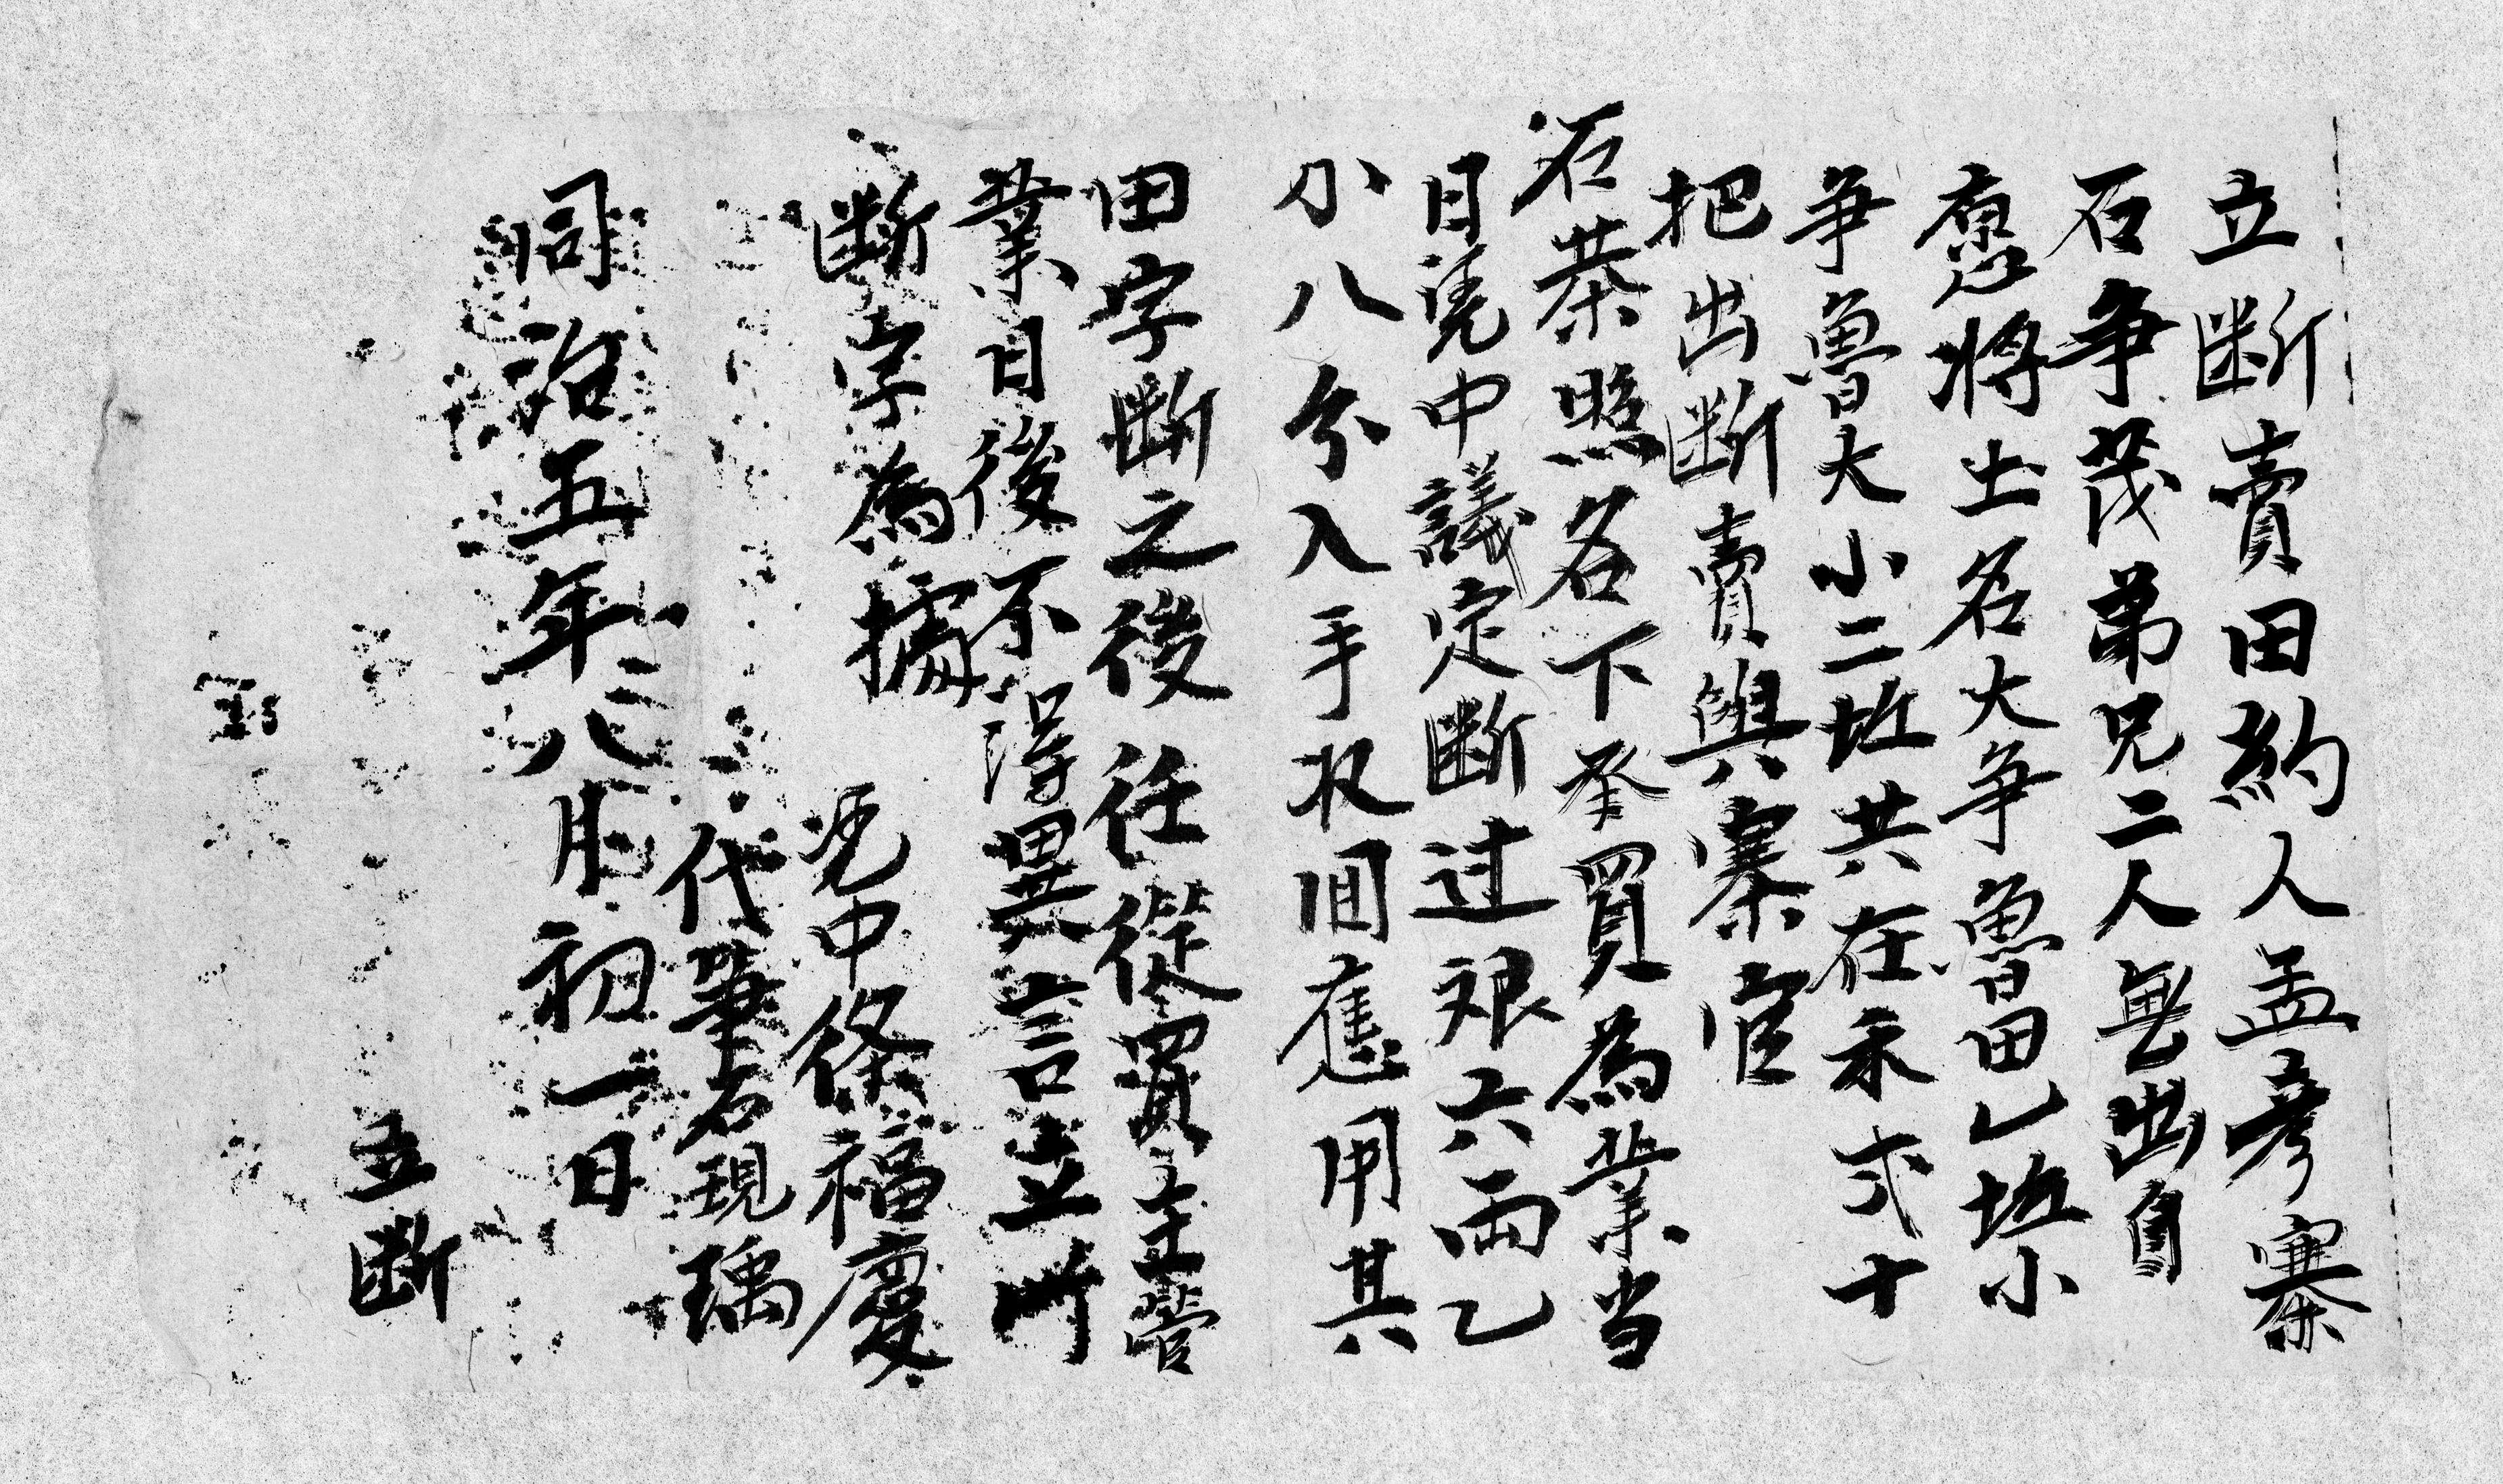 立断賣田約人孟彦寨
石爭茂弟兄二人無出自
愿將土名大爭魯田乚坵小
爭魯大小二坵共在禾弍十
把出断賣與寨官
石榮照名下承買為業当
日凴中議定断过艰六両乙
小八分入手収回應用其
田字断之後任從買主營
業日後不得異言立此
断字為據
凴中绦福慶
代筆石現瑀
同治五年三八月初一日
立断